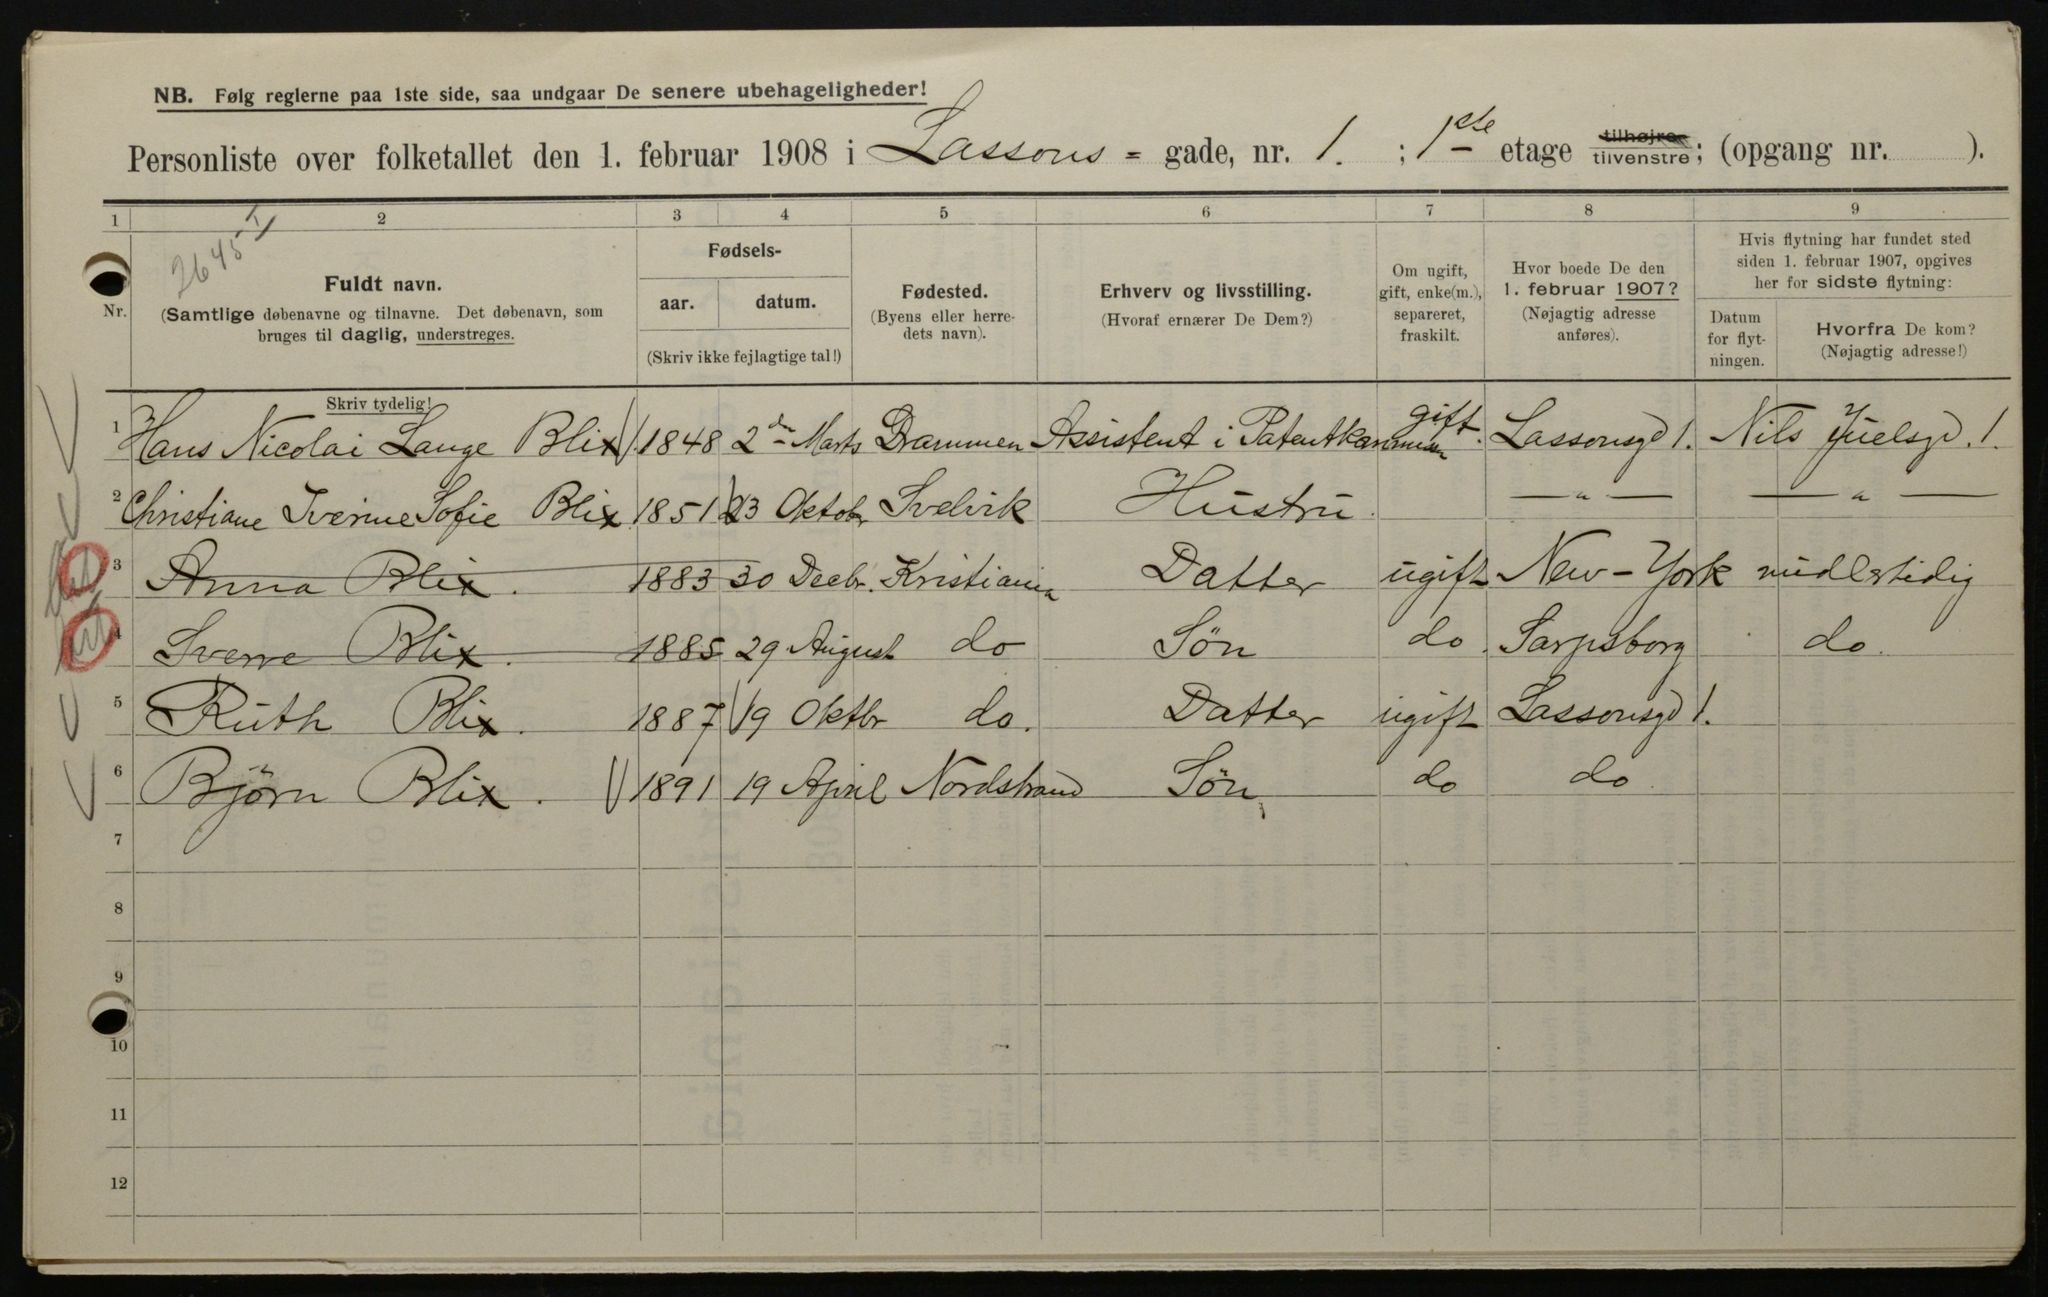 NB. Følg reglerne paa 1ste side, saa undgaar De senere ubehageligheder!
Personliste over folketallet den 1. februar 1908 i Lassons - gade, nr. 1. ; 1ste etage tilhøjre tilvenstre; (opgang nr. ).
1 2 3 4 5 6 7 8 9
2645 I
Nr.
Fuldt navn.
(Samtlige døbenavne og tilnavne. Det døbenavn, som
bruges til daglig, understreges.
Skriv tydelig!
Fødsels-
aar. datum.
(Skriv ikke fejlagtige tal!)
Fødested.
(Byens eller herre-
dets navn).
Erhverv og livsstilling.
(Hvoraf ernærer De Dem?)
Om ugift,
gift, enke(m.),
separeret,
fraskilt.
Hvor boede De den
1. februar 1907?
(Nøjagtig adresse
anføres).
Hvis flytning har fundet sted
siden 1. februar 1907, opgives
her for sidste flytning:
Datum
for flyt-
ningen.
Hvorfra De kom?
(Nøjagtig adresse!)
1 Hans Nicolai Lange Blix 1848 2den Marts Drammen Assistent i Patentkommissn gift. Lassonsgd 1. Nils Juelsgd. 1.
2 Christiane Iverine Sofie Blix 1851 23 Oktobr Svelvik Hustru — " — — " —
3 Anna Blix. 1883 30 Decbr. Kristiania Datter ugift New-York midlertidig
4 Sverre Blix. 1885 29 August do Søn do Sarpsborg do.
5 Ruth Blix. 1887 19 Oktbr do. Datter ugift Lassonsgd 1.
6 Bjørn Blix. 1891 19 April Nordstrand Søn do do
7
8
9
10
11
12